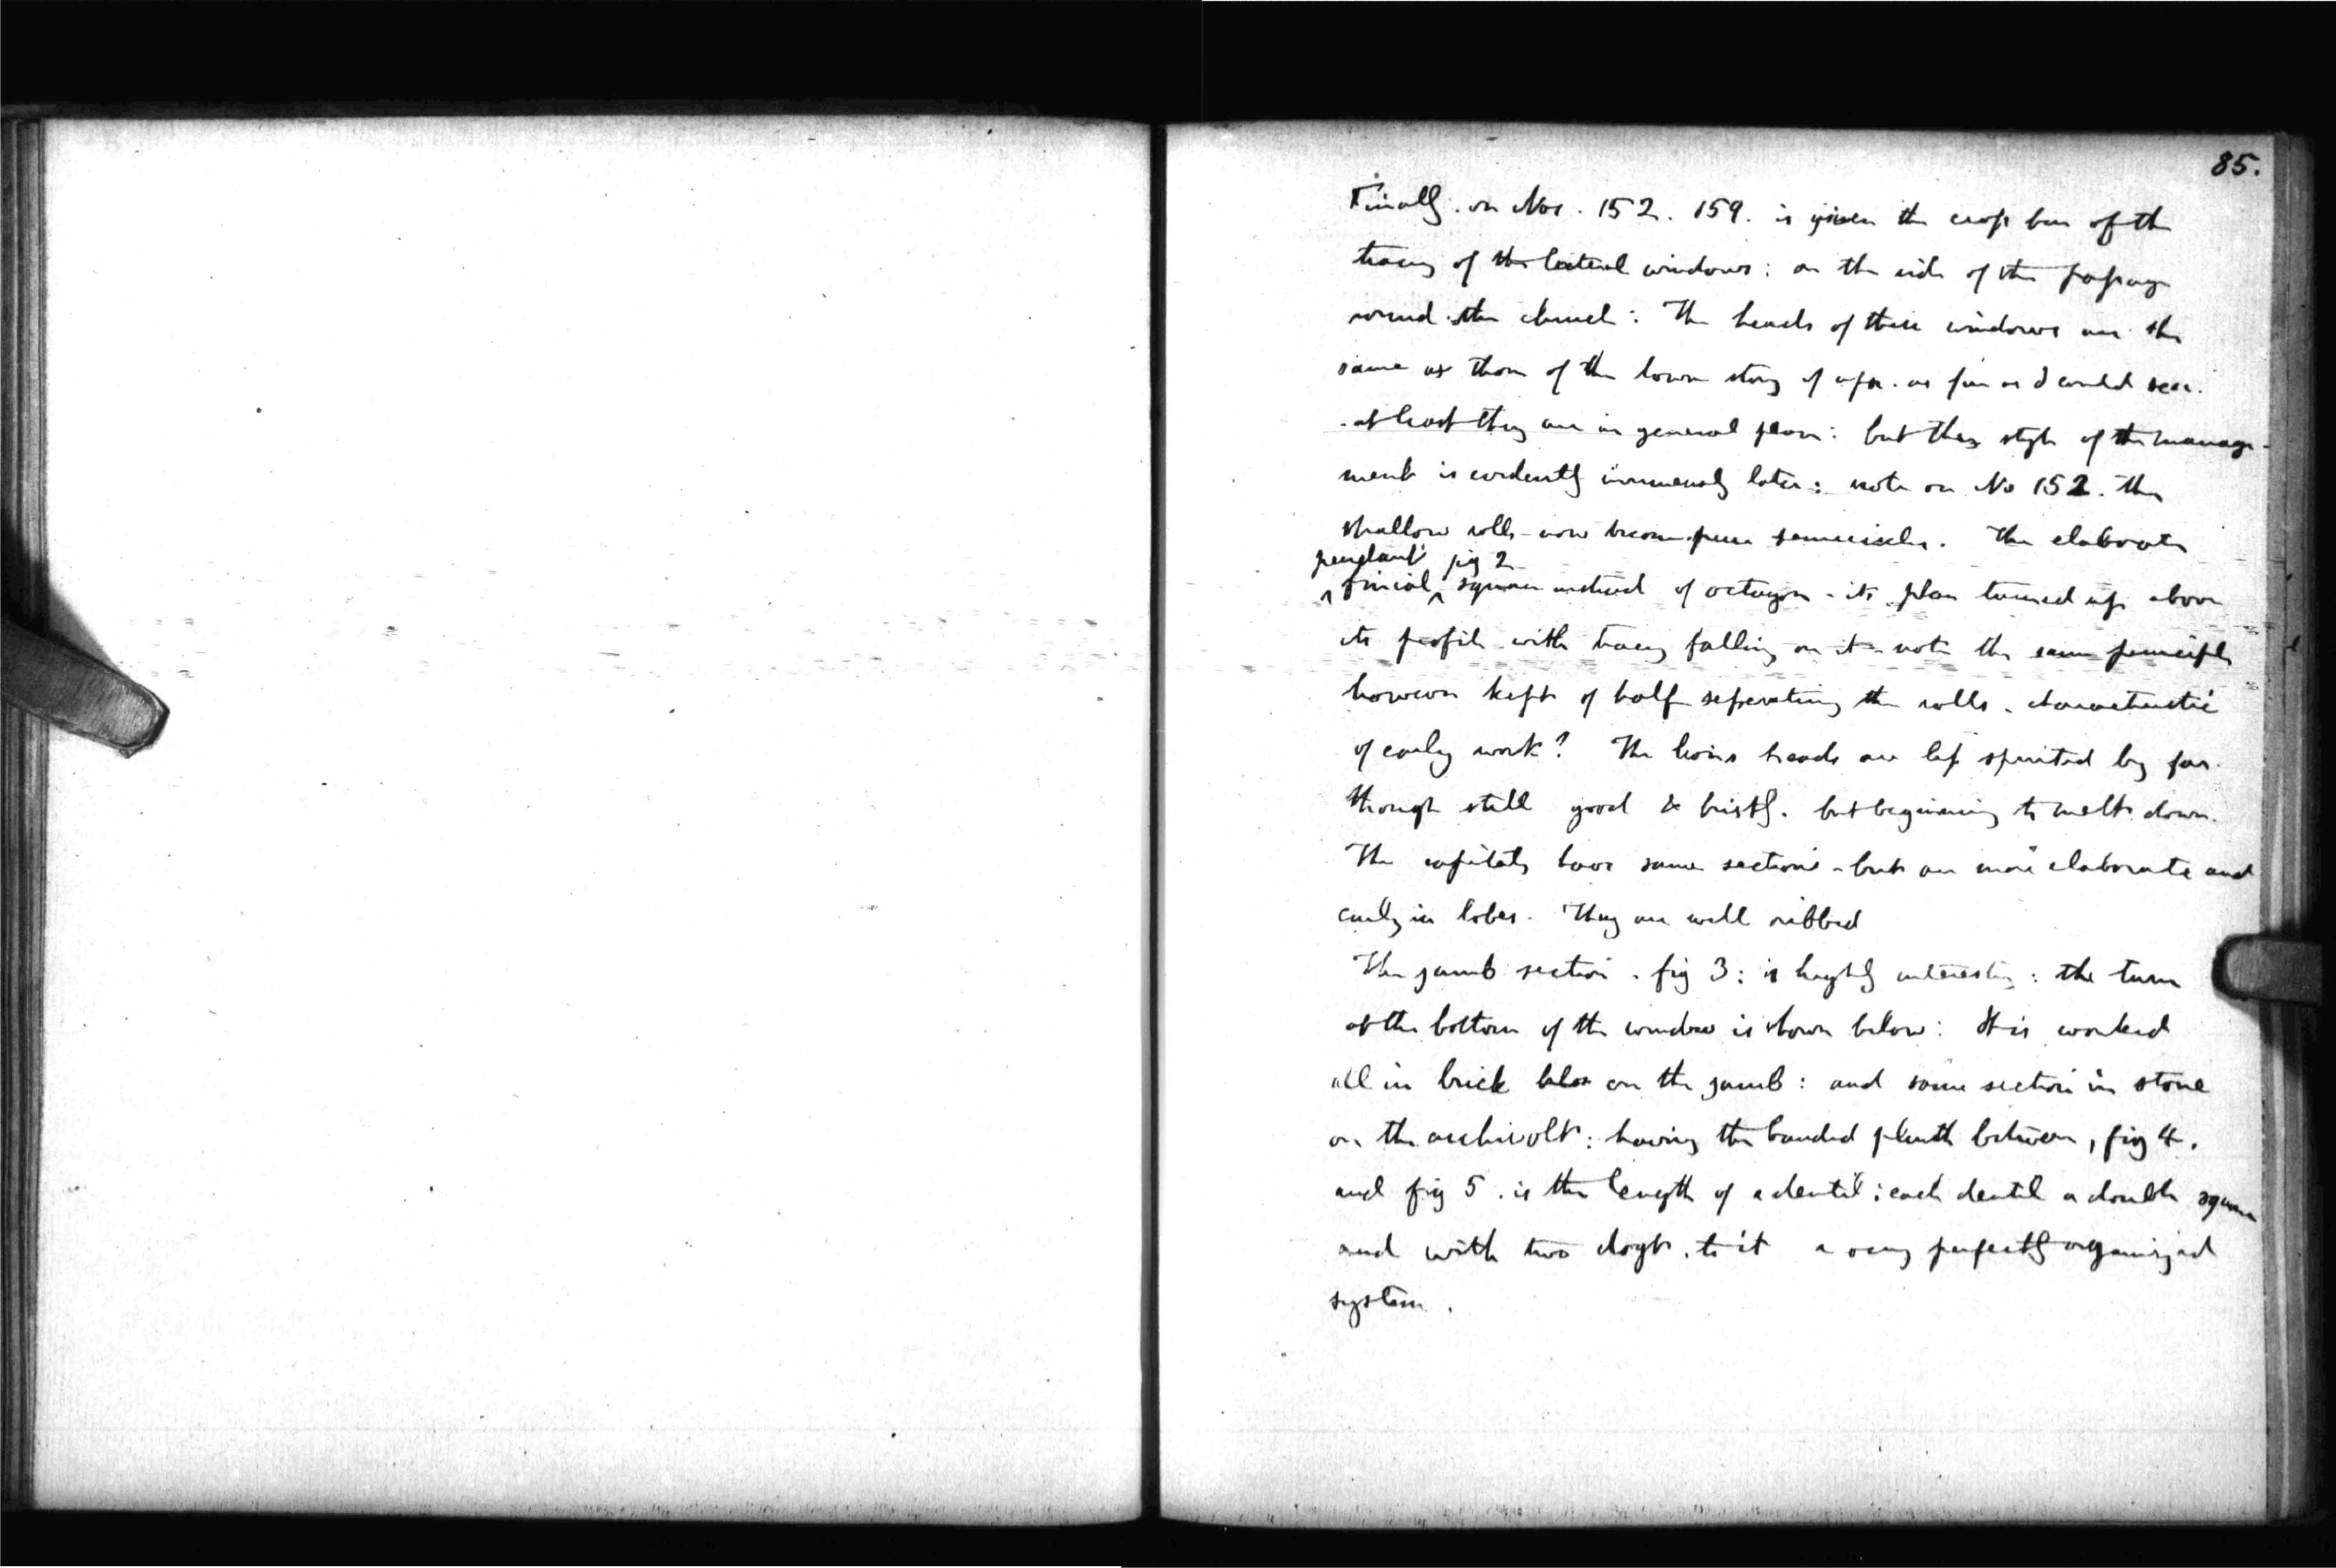 85.
Finally. on Nos. 152. 159. is given the cross bar of the
tracery of the lateral windows: on the side of the passage
round the church: The heads of these windows are the
same as those of the lower story of apse. as far as I could see.
at least they are in general plan: but the style of the manage-
ment is evidently immensely later: note on No 152. the
shallow rolls now become pure semicircles. The elaborate
pendant fig 2
finial square instead of octagon - its plan turned up above
its profile with tracery falling on it - note the same principle
however kept of half seperating the rolls. characteristic
of early work? The lions heads are less spirited by far.
though still good & bristly. but beginning to melt down.
The capitals have same section - but are more elaborate and
curly in lobes. They are well ribbed
The jamb section. fig 3: is highly interesting: the turn
at the bottom of the window is shown below: It is worked
all in brick on the jamb: and same section in stone
on the archivolt: having the banded plinth between, fig 4.
and fig 5. is the length of a dentil: each dentil a double square
and with two dogt. to it a very perfectly organized
system.